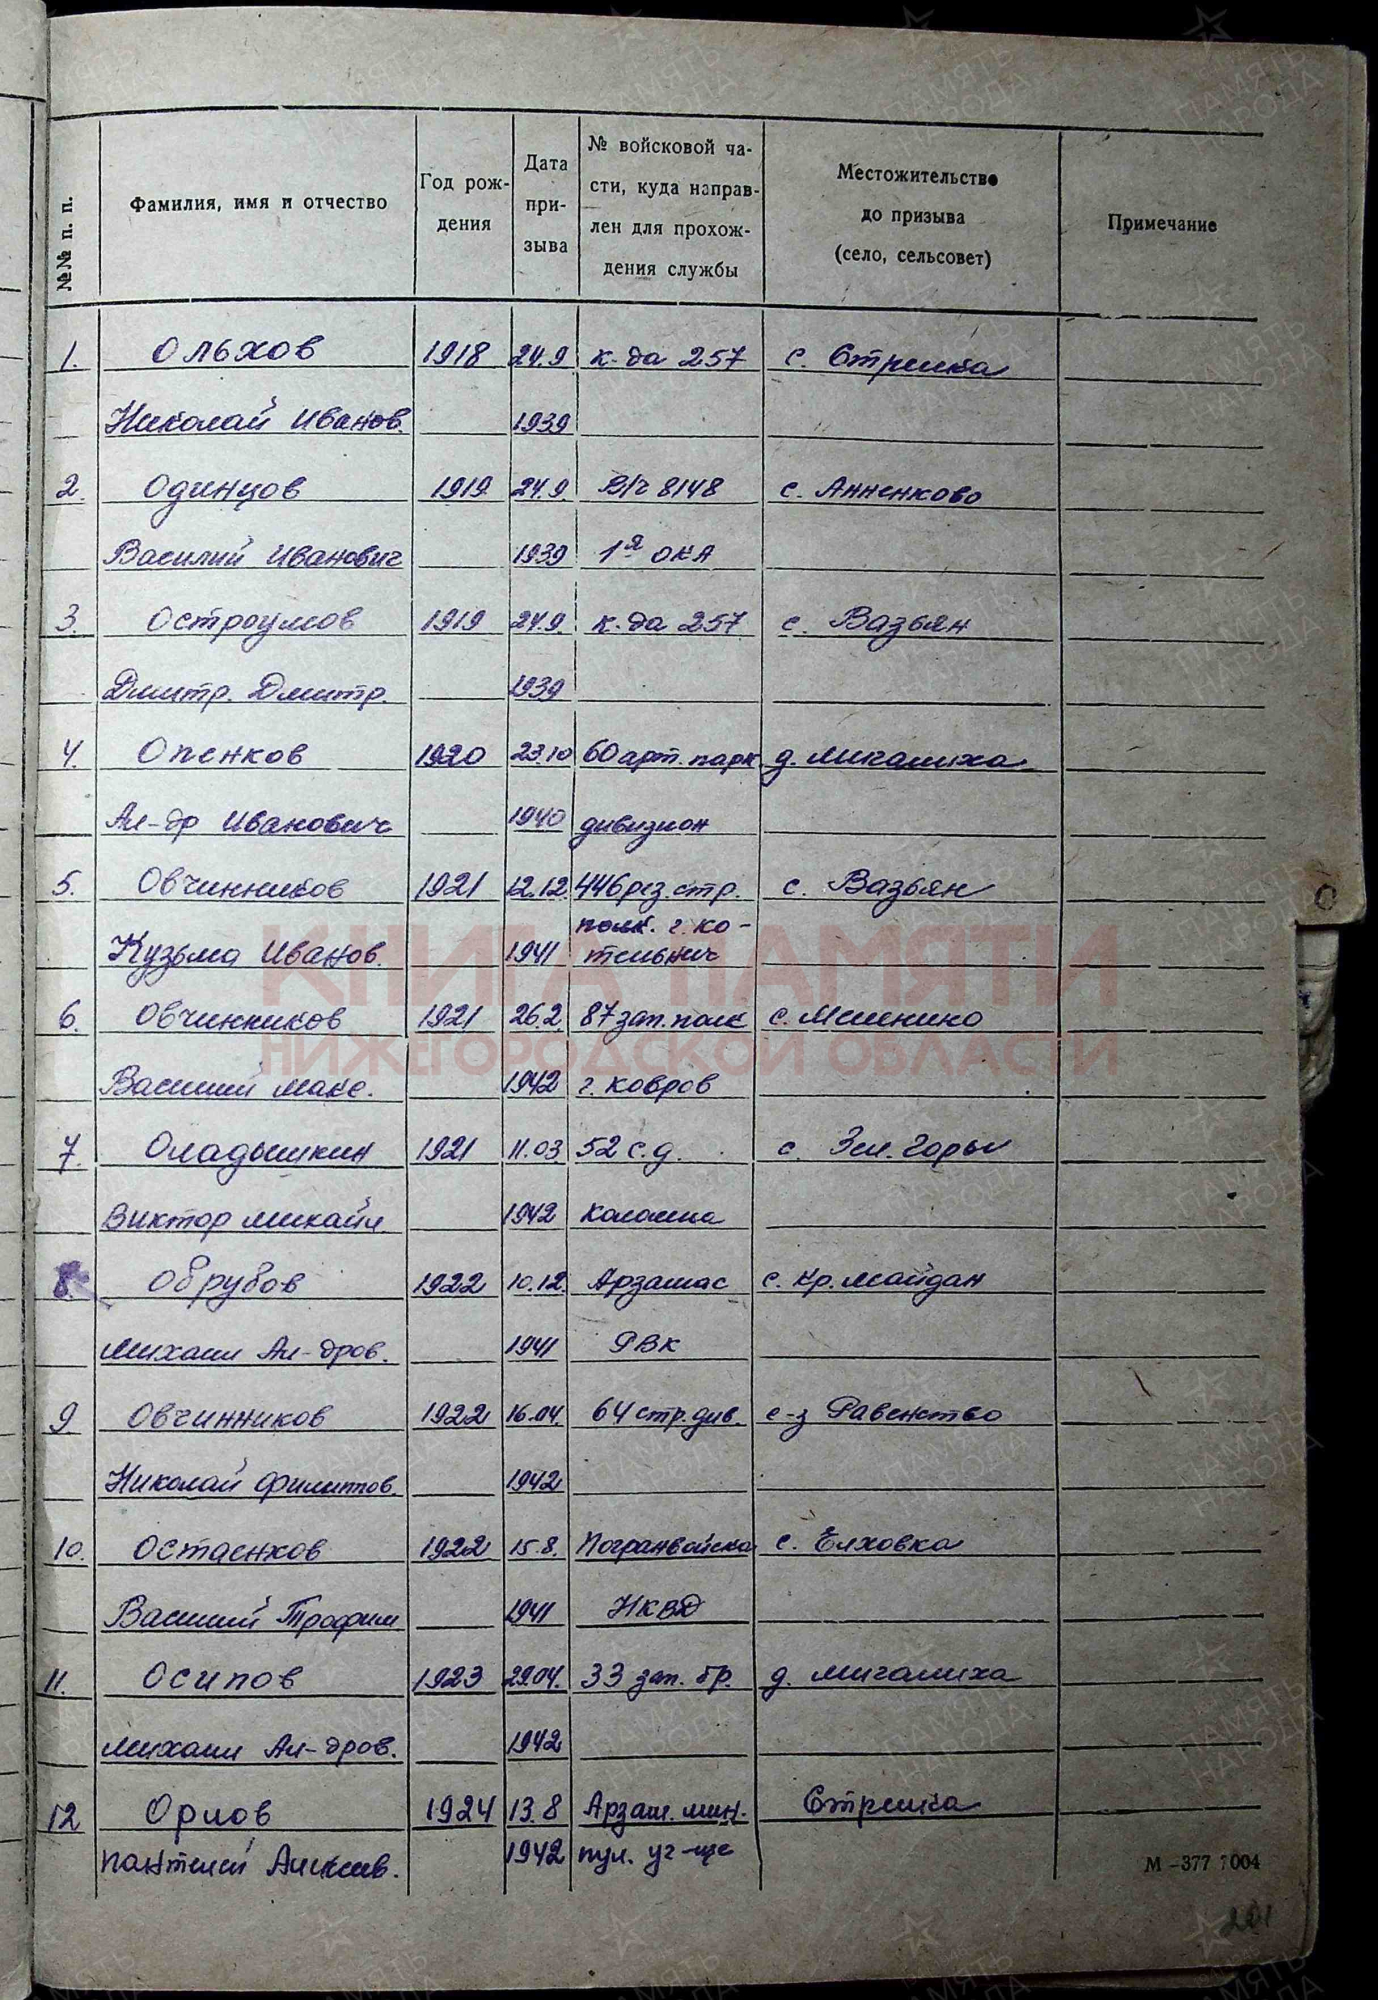 №№ п. п. | Фамилия, имя и отчество | Год рождения | Дата призыва | № войсковой части, куда направлен для прохождения службы | Местожительство до призыва (село, сельсовет) | Примечание
1. Ольхов 1918 24.9 к-да 257 с. Стрелка
Николай Иванов. 1939
2. Одинцов 1919 24.9. В/ч 8148 с. Анненково
Василий Иванович 1939 1я ОКА
3. Остроумов 1919 24.9. к-да 257 с. Вазьян
Дмитр. Дмитр. 1939
4. Опенков 1920 23.10 60 арт. парк. д. Мигалиха
Ал-др Иванович 1940 дивизион
5. Овчинников 1921 12.12. 446 рез. стр. с. Вазьян
полк. г. Ко-
Кузьма Иванов. 1941 тельнич
6. Овчинников 1921 26.2. 87 зап. полк с.
Василий Макс. 1942 г. Ковров
7. Оладышкин 1921 11.03. 52 с.д. с. Зел. Горы
Виктор Михайл. 1942 Коломна
8. Обрубов 1922 10.12. Арзамас с. Кр. Майдан
Михаил Ал-дров. 1941 РВК
9 Овчинников 1922 16.04. 64 стр. див. с-з Равенство
Николай Филиппов. 1942
10. Остаенков 1922 15.8. Погранвойска с. Елховка
Василий Трофим 1941 НКВД
11. Осипов 1923 29.04. 33 зап. бр. д. Мигалиха
Михаил Ал-дров. 1942
12 Орлов 1924 13.8 Арзам. мин. Стрелка
Пантелей Алексеев. 1942 пул. уч-ще
О
КНИГА ПАМЯТИ
НИЖЕГОРОДСКОЙ ОБЛАСТИ
М-377 7004
201
ПАМЯТЬ НАРОДА